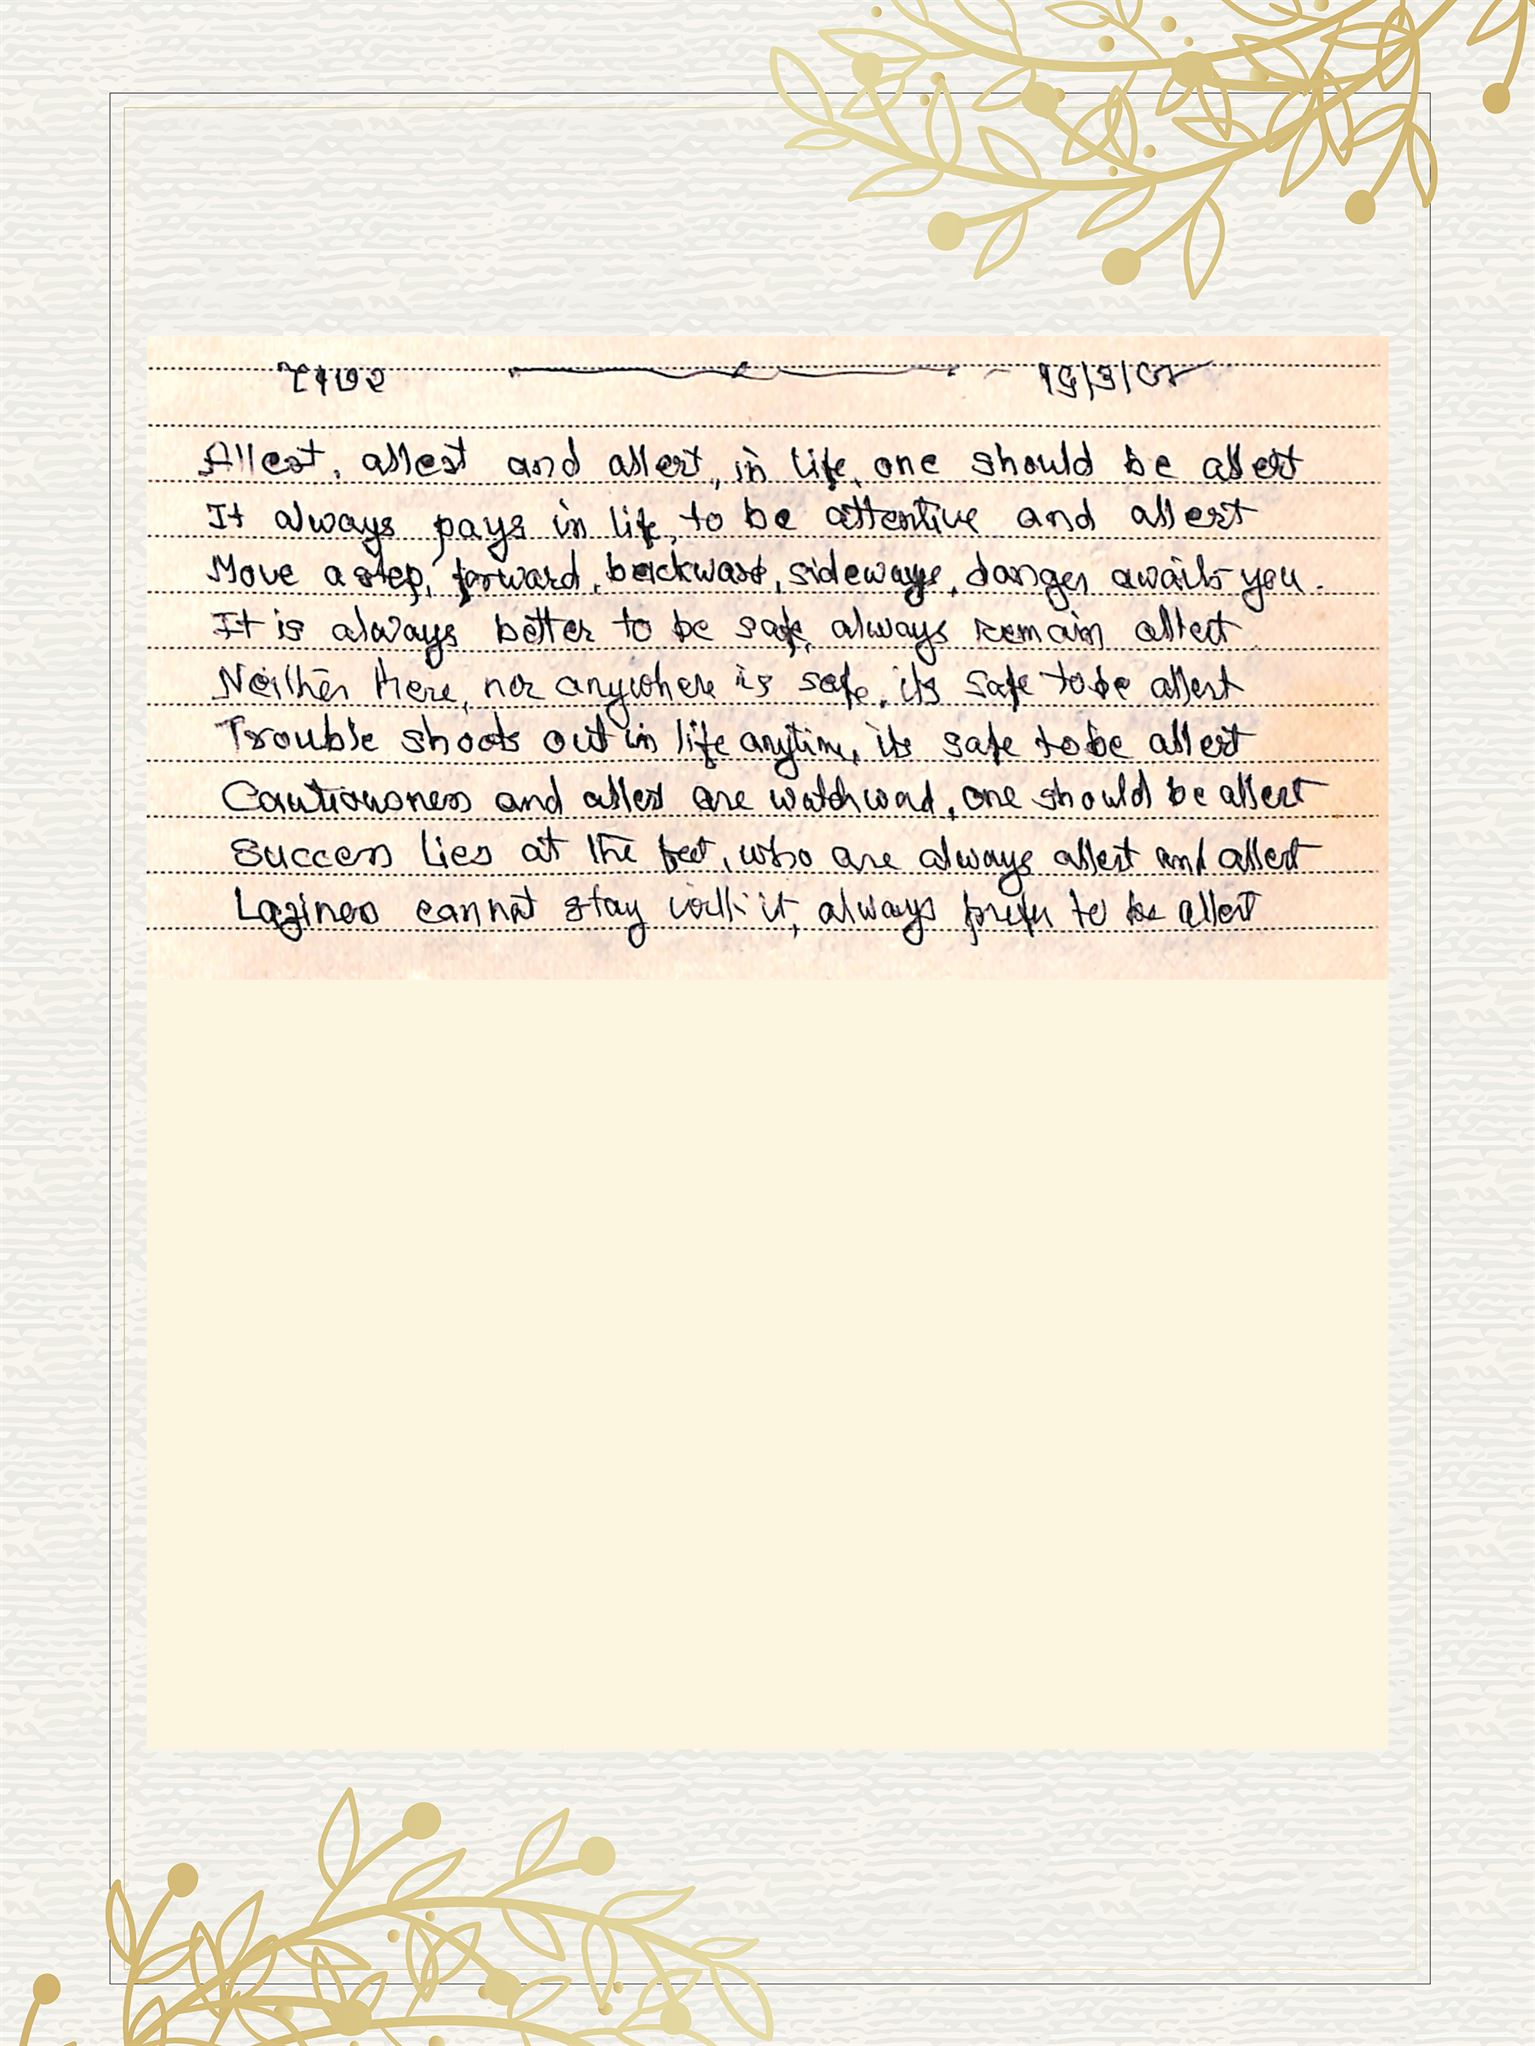 Allert, allert and allert, in life, one should be allert
It always pays in life, to be attentive and allert
Move a step, forward, backward, sideways, danger awaits you.
It is always better to be safe, always remain allert
Neither here, nor anywhere is safe, its safe to be allert
Trouble shoots out in life anytime, its safe to be allert
Cautiousness and allert are watchword, one should be allert
Success lies at the feet, who are always allert and allert
Laziness cannot stay with it, always prefer to be allert